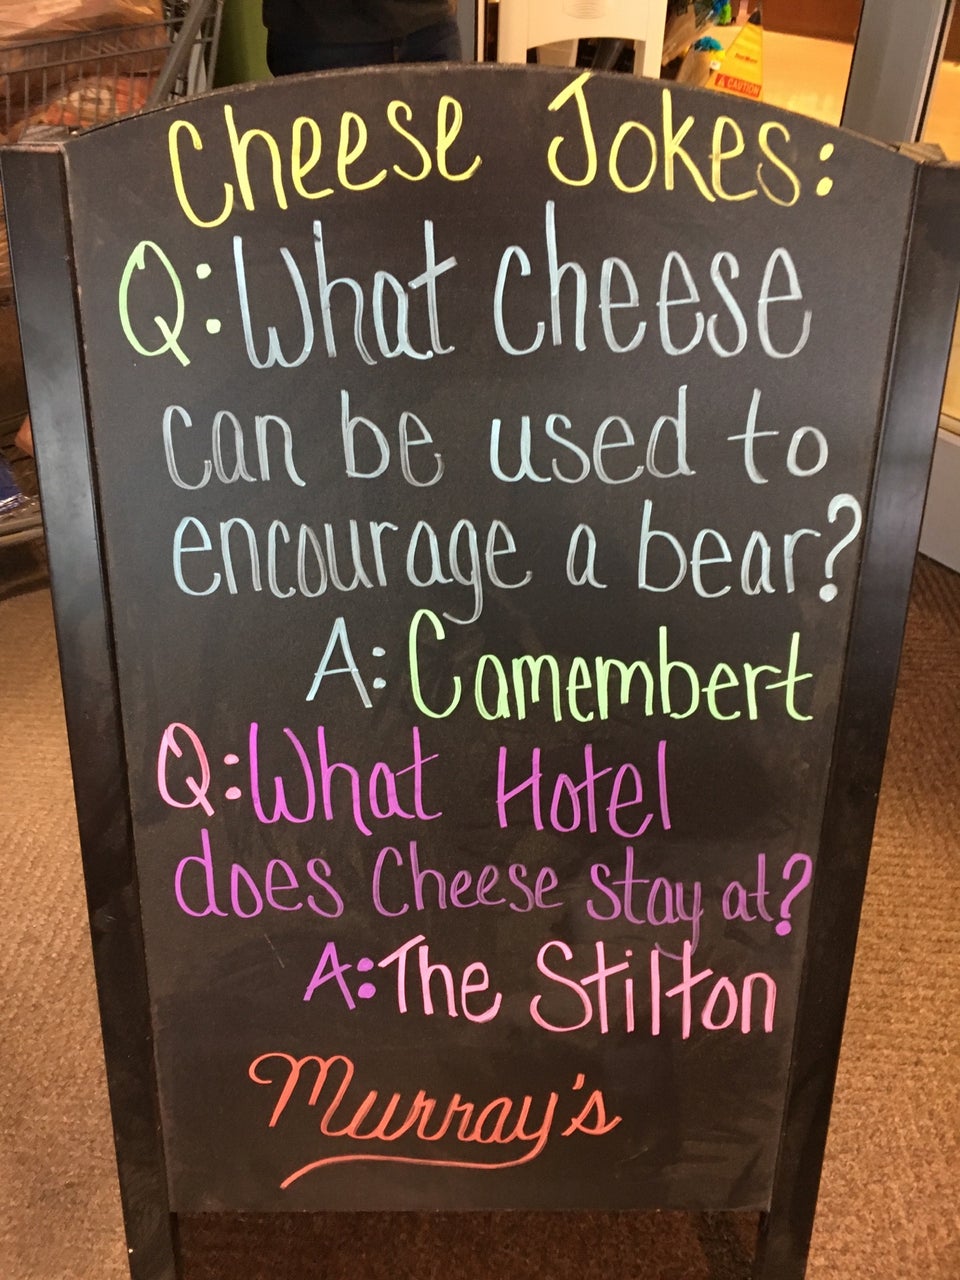 Cheese Jokes:
Q: What cheese
can be used to
encourage a bear?
A: Camembert
Q: What Hotel
does Cheese stay at?
A: The Stilton
Murray's
CAUTION